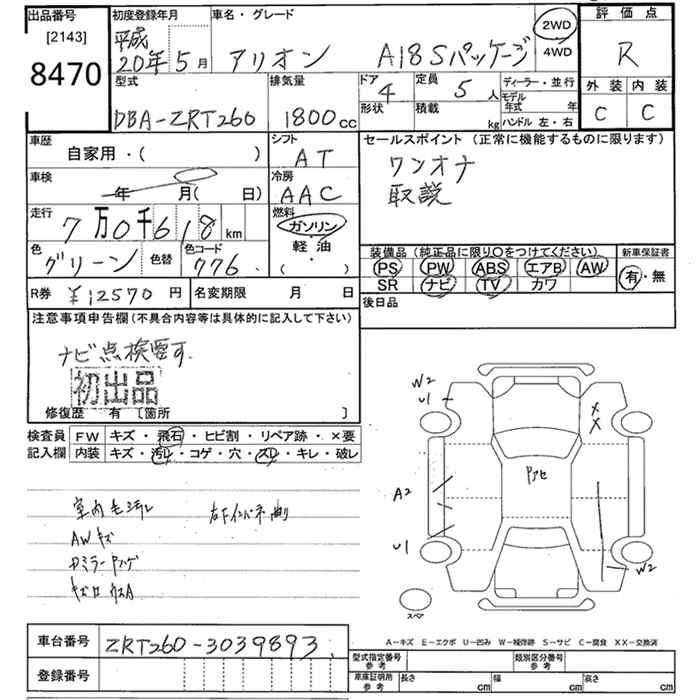 出品番号
[2143]
8470
初度登録年月
平成
20年5月
車名・グレード
アリオン A18Sパッケージ
2WD
4WD
評価点
R
外装 内装
C C
型式
DBA-ZRT260
排気量
1800cc
ドア 4
形状
定員 5人
積載 kg
ディーラー・並行
モデル年式 年
ハンドル 左・右
車歴
自家用・( )
シフト
AT
セールスポイント (正常に機能するものに限ります)
ワンオナ
取説
車検
年 月( 日)
冷房
AAC
走行
7万0千618km
燃料
ガソリン
軽油
・( )
色
グリーン
色替
色コード
776
装備品 (純正品に限り○をつけてください)
PS PW ABS エアB AW
SR ナビ TV カワ
新車保証書
有・無
R券 ¥12570円
名変期限 月 日
後日品
注意事項申告欄(不具合内容等は具体的に記入して下さい)
ナビ点検要す.
初出品
修復歴 有 〔箇所 〕
検査員 FW キズ・飛石・ヒビ割・リペア跡・×要
記入欄 内装 キズ・汚レ・コゲ・穴・スレ・キレ・破レ
室内毛汚レ
AWキズ
W2
U1
XX
A2
U1
W2
スペア
A-キズ E-エクボ U-凹み W-補修跡 S-サビ C-腐食 XX-交換済
車台番号 ZRT260-3039893
登録番号
型式指定番号 参考
類別区分番号 参考
車庫証明用 参考
長さ cm 幅 cm 高さ cm